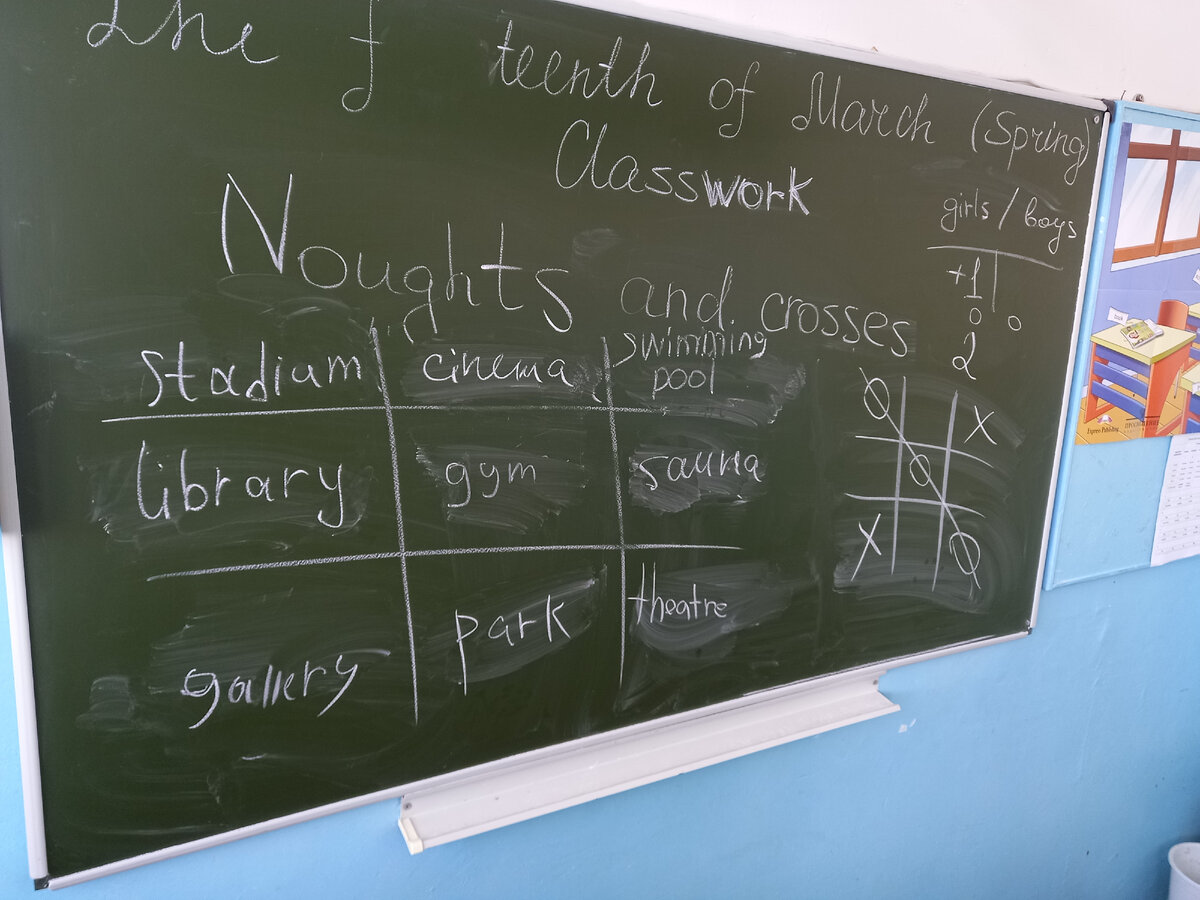 The f teenth of March (Spring)
Classwork
girls / boys
Noughts and crosses
+1
0 0
2
stadium cinema swimming pool
library gym sauna
gallery park theatre
O X
O
X O
Express Publishing